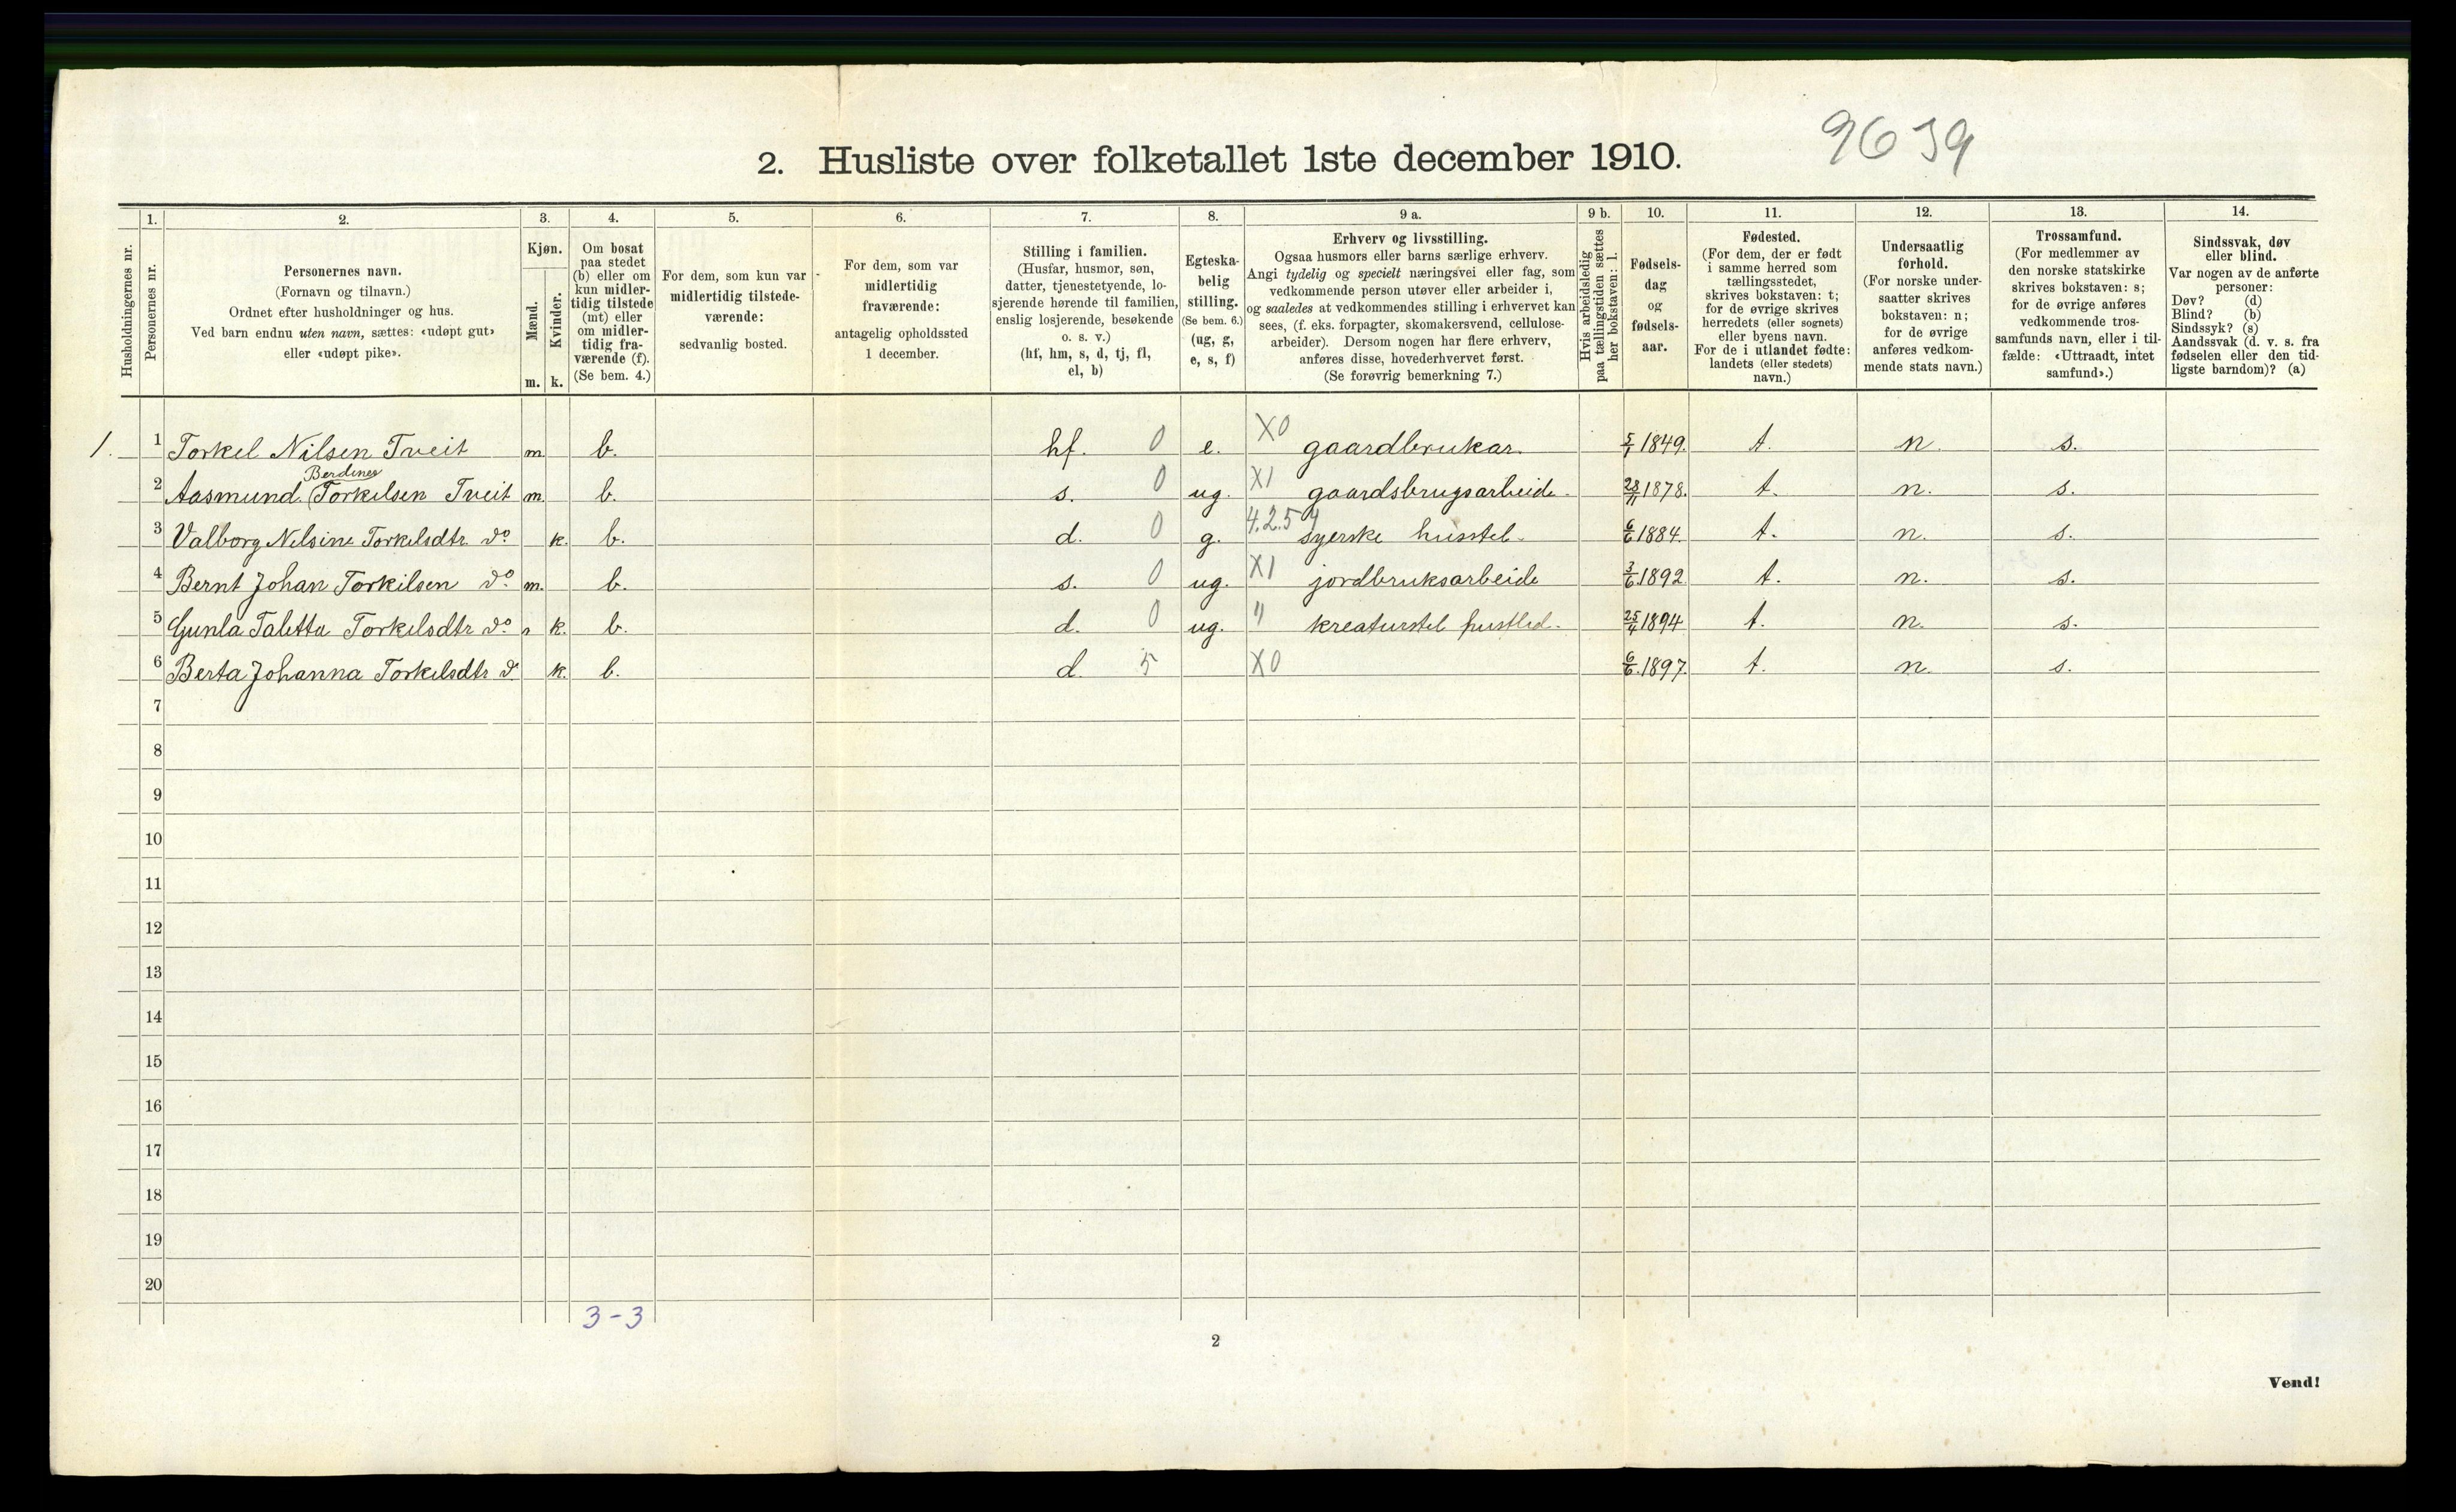 9639
2. Husliste over folketallet 1ste december 1910.
Husholdningernes nr.
1.
Personernes nr.
2.
Personernes navn.
(Fornavn og tilnavn.)
Ordnet efter husholdninger og hus.
Ved barn endnu uten navn, sættes: «udøpt gut»
eller «udøpt pike».
3.
Kjøn.
Mænd.
Kvinder.
m. k.
4.
Om bosat
paa stedet
(b) eller om
kun midler-
tidig tilstede
(mt) eller
om midler-
tidig fra-
værende (f).
(Se bem. 4.)
5.
For dem, som kun var
midlertidig tilstede-
værende:
sedvanlig bosted.
6.
For dem, som var
midlertidig
fraværende:
antagelig opholdssted
1 december.
7.
Stilling i familien.
(Husfar, husmor, søn,
datter, tjenestetyende, lo-
sjerende hørende til familien,
enslig losjerende, besøkende
o. s. v.)
(hf, hm, s, d, tj, fl,
el, b)
8.
Egteska-
belig
stilling.
(Se bem. 6.)
(ug, g,
e, s, f)
9 a.
Erhverv og livsstilling.
Ogsaa husmors eller barns særlige erhverv.
Angi tydelig og specielt næringsvei eller fag, som
vedkommende person utøver eller arbeider i,
og saaledes at vedkommendes stilling i erhvervet kan
sees, (f. eks. forpagter, skomakersvend, cellulose-
arbeider). Dersom nogen har flere erhverv,
anføres disse, hovederhvervet først.
(Se forøvrig bemerkning 7.)
9 b.
Hvis arbeidsledig
paa tællingstiden sættes
her bokstaven: l.
10.
Fødsels-
dag
og
fødsels-
aar.
11.
Fødested.
(For dem, der er født
i samme herred som
tællingsstedet,
skrives bokstaven: t;
for de øvrige skrives
herredets (eller sognets)
eller byens navn.
For de i utlandet fødte:
landets (eller stedets)
navn.)
12.
Undersaatlig
forhold.
(For norske under-
saatter skrives
bokstaven: n;
for de øvrige
anføres vedkom-
mende stats navn.)
13.
Trossamfund.
(For medlemmer av
den norske statskirke
skrives bokstaven: s;
for de øvrige anføres
vedkommende tros-
samfunds navn, eller i til-
fælde: «Uttraadt, intet
samfund».)
14.
Sindssvak, døv
eller blind.
Var nogen av de anførte
personer:
Døv? (d)
Blind? (b)
Sindssyk? (s)
Aandssvak (d. v. s. fra
fødselen eller den tid-
ligste barndom)? (a)
1. 1 Torkel Nilsen Tveit m. b. hf. 0 e. X0 gaardbrukar. 5/1 1849. t. n. s.
Berdines
2 Aasmund (Torkilsen Tveit m. b. s. 0 ug. X1 gaardsbrugsarbeide. 28/11 1878. t. n. s.
3 Valborg Nelsine Torkelsdtr do k. b. d. 0 g. 4.2.5 4 syerske husstel. 6/6 1884. t. n. s.
4 Bernt Johan Torkilsen do m. b. s. 0 ug. X1 jordbruksarbeide 3/6 1892 t. n. s.
5 Gunla Taletta Torkelsdtr do k. b. d. 0 ug. " kreaturstel 25/4 1894 t. n. s.
6 Berta Johanna Torkelsdtr do k. b. d. 5 X0 6/6 1897. t. n. s.
7
8
9
10
11
12
13
14
15
16
17
18
19
20
3-3
2
Vend!